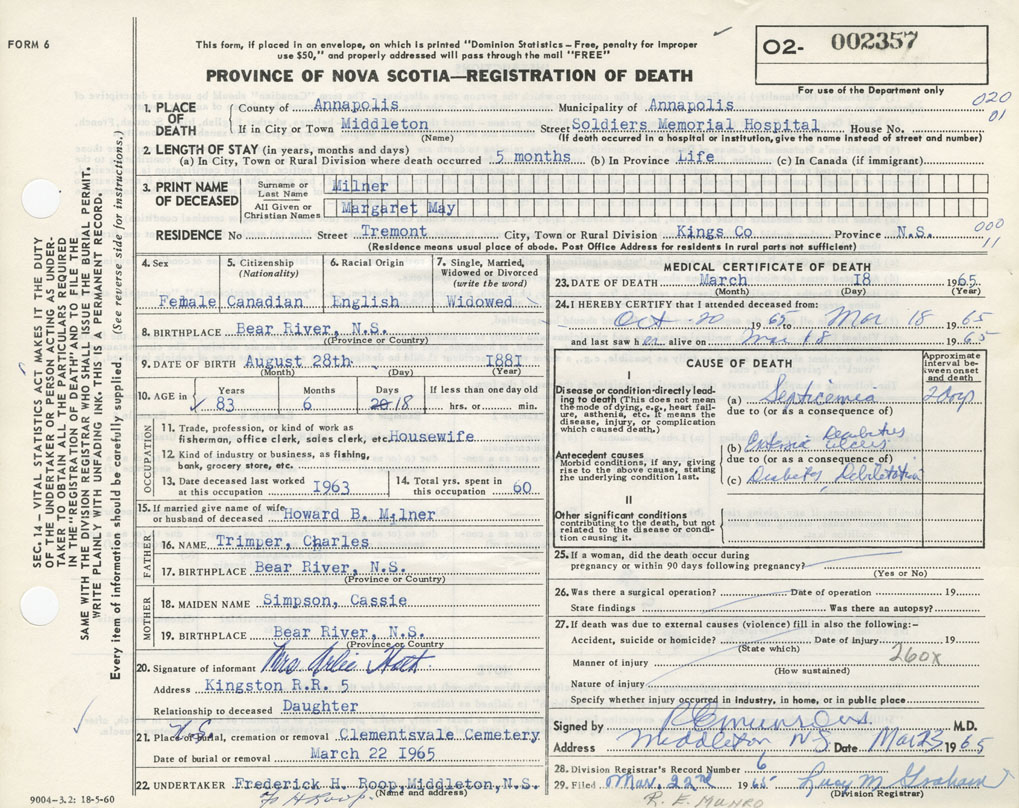 FORM 6
This form, if placed in an envelope, on which is printed "Dominion Statistics – Free, penalty for improper
use $50," and properly addressed will pass through the mail "FREE"
PROVINCE OF NOVA SCOTIA—REGISTRATION OF DEATH
O2- 002357
For use of the Department only
020
01
1. PLACE OF DEATH County of Annapolis Municipality of Annapolis
If in City or Town Middleton Street Soldiers Memorial Hospital House No.
(Name) (If death occurred in a hospital or institution, give the name instead of street and number)
2. LENGTH OF STAY (in years, months and days)
(a) In City, Town or Rural Division where death occurred 5 months (b) In Province Life (c) In Canada (if immigrant)
3. PRINT NAME OF DECEASED
Surname or Last Name Milner
All Given or Christian Names Margaret May
RESIDENCE No Street Tremont City, Town or Rural Division Kings Co Province N.S.
(Residence means usual place of abode. Post Office Address for residents in rural parts not sufficient)
000
11
4. Sex 5. Citizenship (Nationality) 6. Racial Origin 7. Single, Married, Widowed or Divorced (write the word)
Female Canadian English Widowed
8. BIRTHPLACE Bear River, N.S.
(Province or Country)
9. DATE OF BIRTH August 28th 1881
(Month) (Day) (Year)
10. AGE in Years Months Days If less than one day old
83 6 20 18 hrs. or min.
OCCUPATION
11. Trade, profession, or kind of work as
fisherman, office clerk, sales clerk, etc. Housewife
12. Kind of industry or business, as fishing,
bank, grocery store, etc.
13. Date deceased last worked at this occupation 1963
14. Total yrs. spent in this occupation 60
15. If married give name of wife
or husband of deceased Howard B. Milner
FATHER
16. NAME Trimper, Charles
17. BIRTHPLACE Bear River, N.S.
(Province or Country)
MOTHER
18. MAIDEN NAME Simpson, Cassie
19. BIRTHPLACE Bear River, N.S.
(Province or Country
20. Signature of informant Mrs
Address Kingston R.R. 5
Relationship to deceased Daughter
N.S.
21. Place of burial, cremation or removal Clementsvale Cemetery
Date of burial or removal March 22 1965
22. UNDERTAKER Frederick H. Roop, Middleton, N.S.
(Name and address)
F H Roop
MEDICAL CERTIFICATE OF DEATH
23. DATE OF DEATH March 18 1965
(Month) (Day) (Year)
24. I HEREBY CERTIFY that I attended deceased from:
Oct 20 1965 to Mar 18 1965
and last saw her alive on Mar 18 1965
CAUSE OF DEATH
Approximate interval between onset and death
I
Disease or condition directly leading to death (This does not mean
the mode of dying, e.g., heart failure, asthenia, etc. It means the
disease, injury, or complication
which caused death.)
(a) Septicemia
due to (or as a consequence of)
Antecedent causes
Morbid conditions, if any, giving
rise to the above cause, stating
the underlying condition last.
(b) Diabetic Ulcers
due to (or as a consequence of)
(c) Diabetes
II
Other significant conditions
contributing to the death, but not
related to the disease or condition causing it.
25. If a woman, did the death occur during
pregnancy or within 90 days following pregnancy?
(Yes or No)
26. Was there a surgical operation? Date of operation 19
State findings Was there an autopsy?
27. If death was due to external causes (violence) fill in also the following:-
Accident, suicide or homicide? Date of injury 19
(State which)
260x
Manner of injury
(How sustained)
Nature of injury
Specify whether injury occurred in industry, in home, or in public place
Signed by R E Munro M.D.
Address Middleton N.S. Date Mar 23 1965
28. Division Registrar's Record Number 6
29. Filed Mar. 22nd 1965 Lucy M Graham
(Division Registrar)
R. E. MUNRO
SEC. 14 – VITAL STATISTICS ACT MAKES IT THE DUTY
OF THE UNDERTAKER OR PERSON ACTING AS UNDER-
TAKER TO OBTAIN ALL THE PARTICULARS REQUIRED
IN THE "REGISTRATION OF DEATH" AND TO FILE THE
SAME WITH THE DIVISION REGISTRAR WHO SHALL ISSUE THE BURIAL PERMIT.
WRITE PLAINLY WITH UNFADING INK. THIS IS A PERMANENT RECORD.
Every item of information should be carefully supplied. (See reverse side for instructions.)
9004–3.2: 18-5-60